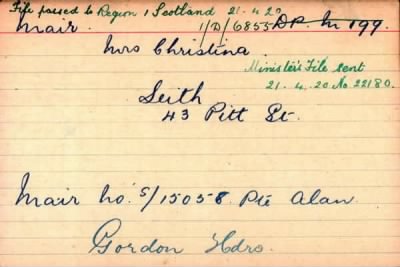 File passed to Region 1 Scotland 21.4.20
Mair. 1/D/6855 D.P. M 199.
Mrs Christina.
Minister's File sent
21.4.20. No 22180.
Leith
43 Pitt St.
Mair No. S/15058 Pte Alan.
Gordon Hdrs.